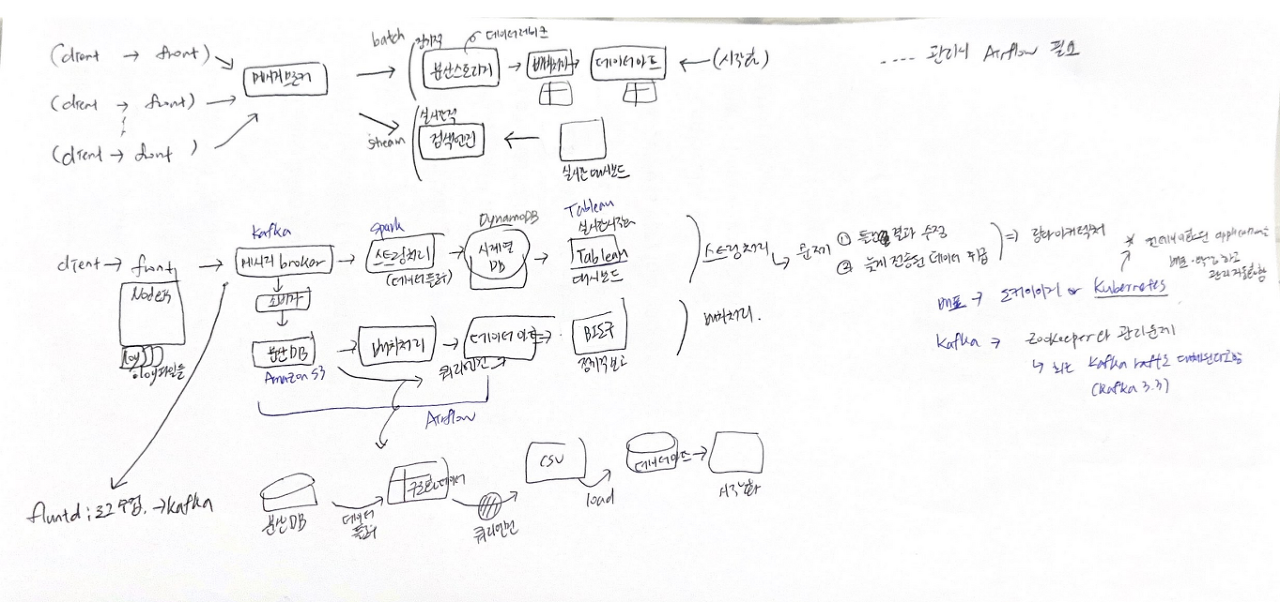 (client → front)
(client → front)
(client → front)
메세지브로커
batch
정기적
데이터레이크
분산스토리지
→
배치처리
→
데이터마트
←
(시각화)
.... 관리시 Airflow 필요
stream
실시간적
검색엔진
←
실시간 대시보드
Kafka
Spark
DynamoDB
Tableau
실시간시각화
client → front
→
메세지 broker
→
스트림처리
(데이터플러)
→
시계열
DB
→
Tableau
대시보드
스트림처리
↳ 문제
① 틀린 결과 수정
② 늦게 전송된 데이터 취급
⇒ 람다아키텍처
NodeJS
log
log파일들
소비자
분산DB
Amazon S3
→
배치처리
→
데이터마트
쿼리엔진
BI도구
정기적 보고
배치처리.
Airflow
배포 → 도커이미지 or Kubernetes
* 컨테이너화된 application을
배포·확장하고
관리 자동화함
Kafka → Zookeeper와 관리문제
↳ 최근 Kafka raft로 대체된다고함
(Kafka 3.3)
fluntd : 로그수집. → kafka
분산DB
데이터
플러
구조화데이터
쿼리엔진
CSV
load
데이터마트
→
시각화